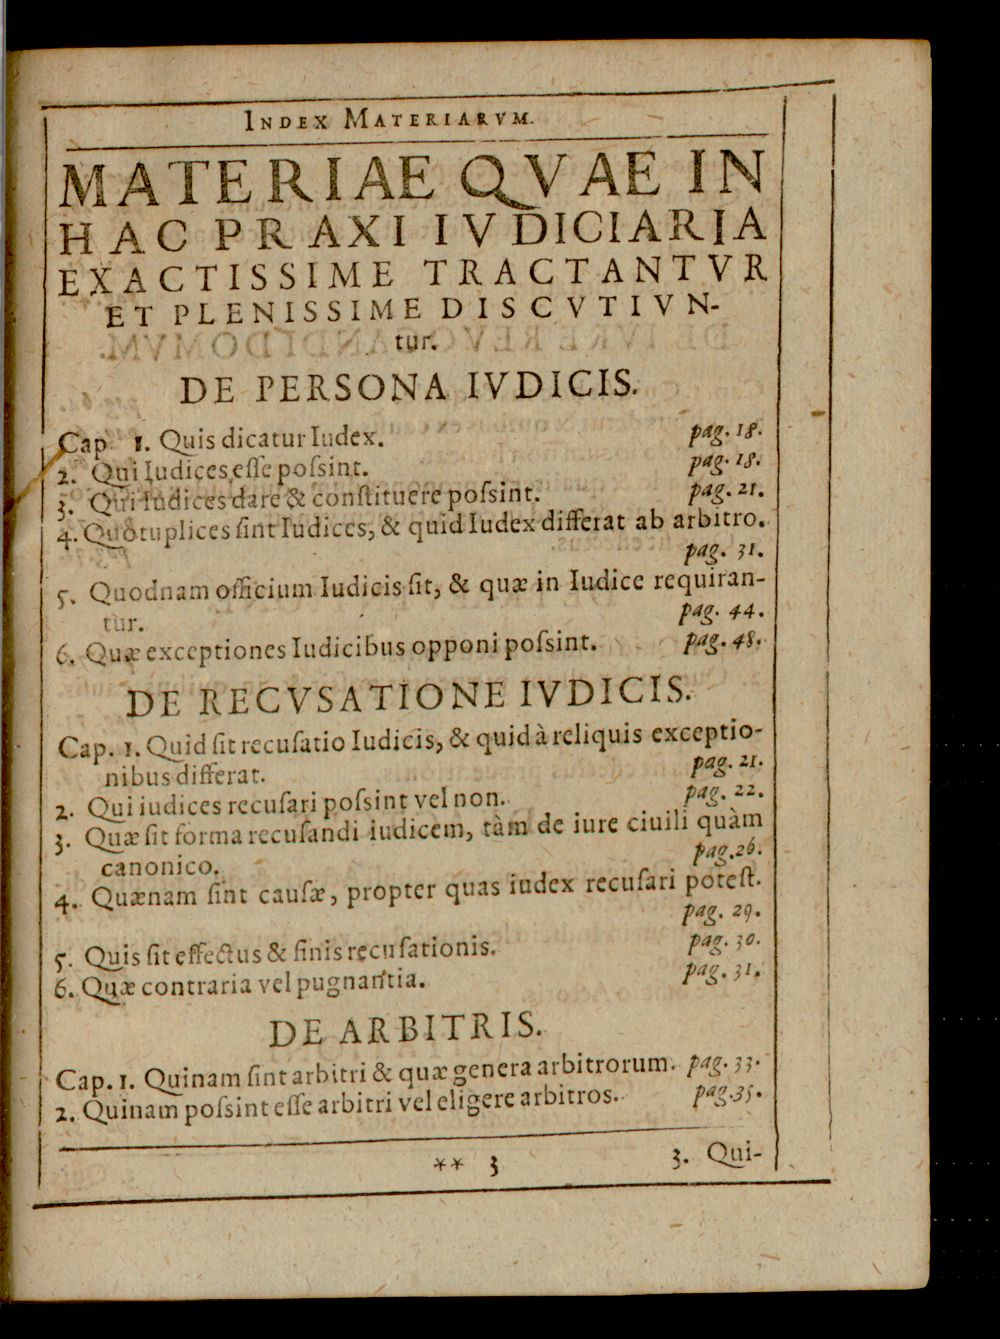 INDEX MATERIARVM.
MATERIAE QVAE IN
HAC PRAXI IVDICIARIA
EXACTISSIME TRACTANTVR
ET PLENISSIME DISCVTIVN-
tur.
DE PERSONA IVDICIS.
Cap 1. Quis dicatur Iudex. pag. 18.
2. Qui Iudices eſſe poſsint. pag. 18.
3. Qui Iudices dare & conſtituere poſsint. pag. 21.
4. Quotuplices ſint Iudices, & quid Iudex differat ab arbitro.
pag. 31.
5. Quodnam officium Iudicis ſit, & quæ in Iudice requiran-
tur. pag. 44.
6. Quæ exceptiones Iudicibus opponi poſsint. pag. 48.
DE RECVSATIONE IVDICIS.
Cap. 1. Quid ſit recuſatio Iudicis, & quid à reliquis exceptio-
nibus differat. pag. 21.
2. Qui iudices recuſari poſsint vel non. pag. 22.
3. Quæ ſit forma recuſandi iudicem, tàm de iure ciuili quàm
canonico. pag. 26.
4. Quænam ſint cauſæ, propter quas iudex recuſari poteſt.
pag. 29.
5. Quis ſit effectus & finis recuſationis. pag. 30.
6. Quæ contraria vel pugnantia. pag. 31.
DE ARBITRIS.
Cap. 1. Quinam ſint arbitri & quæ genera arbitrorum. pag. 33.
2. Quinam poſsint eſſe arbitri vel eligere arbitros. pag. 35.
** 3 3. Qui-